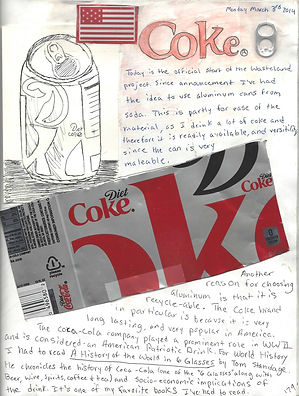 Monday March 3rd 2014
Coke.
Today is the official start of the Wasteland
project. Since announcement I've had
the idea to use aluminum cans from
soda. This is partly for ease of the
material, as I drink a lot of coke and
therefore it is readily available, and versatility
since the can is very
maleable.
Diet
Coke
Diet
Coke
Diet
Coke
Another
reason for choosing
aluminum is that it is
recycle-able. The Coke brand
in particular is because it is very
long lasting, and very popular in America.
The Coca-Cola company played a prominent role in WW II
and is considered an American Patriotic Drink. For World History
I had to read A History of the World in 6 Glasses by Tom Standage.
He chronicles the history of Coca-Cola (one of the "6 Glasses" along with
Beer, wine, Spirits, coffee + tea) and socio-economic implications of
the drink. It's one of my favorite books I've had to read.